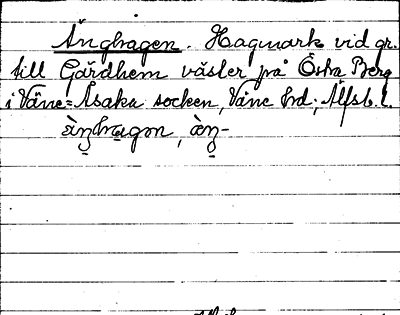 Änghagen. Hagmark vid gr.
till Gärdhem väster på Östra Berg
i Väne-Åsaka socken, Väne hd; Älfsb. l.